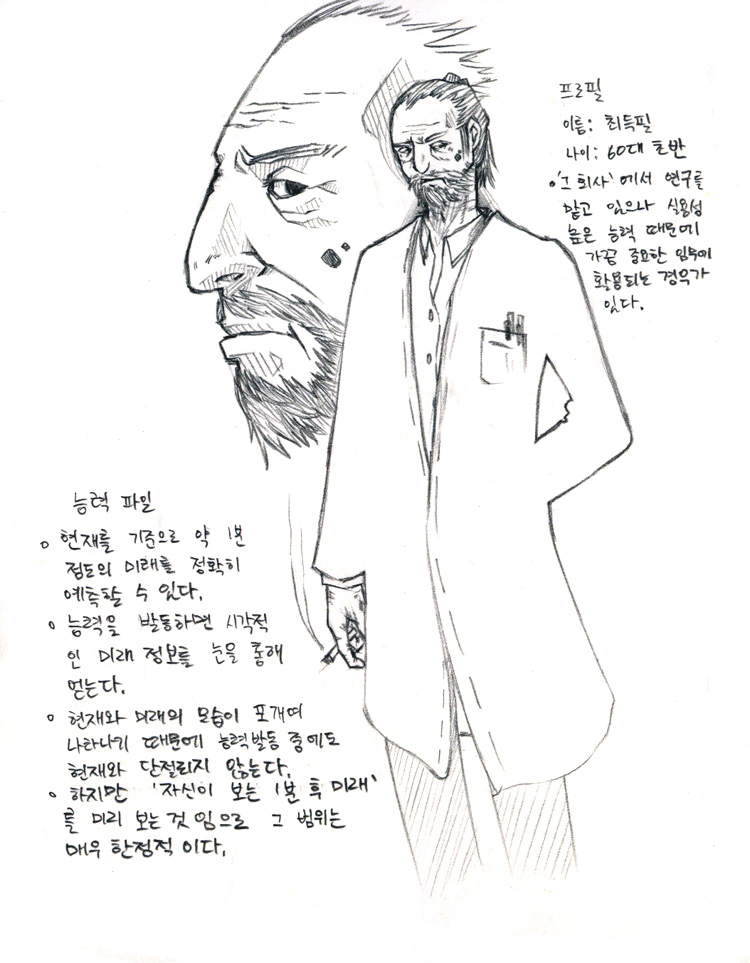 프로필
이름: 최득필
나이: 60대 초반
'그 회사'에서 연구를
맡고 있으나 실용성
높은 능력 때문에
가끔 중요한 임무에
활용되는 경우가
있다.
능력 파일
현재를 기준으로 약 1분
정도의 미래를 정확히
예측할 수 있다.
능력을 발동하면 시각적
인 미래 정보를 눈을 통해
얻는다.
현재와 미래의 모습이 포개여
나타나기 때문에 능력발동 중에도
현재와 단절되지 않는다.
하지만 '자신이 보는 1분 후 미래'
를 미리 보는 것 임으로 그 범위는
매우 한정적 이다.